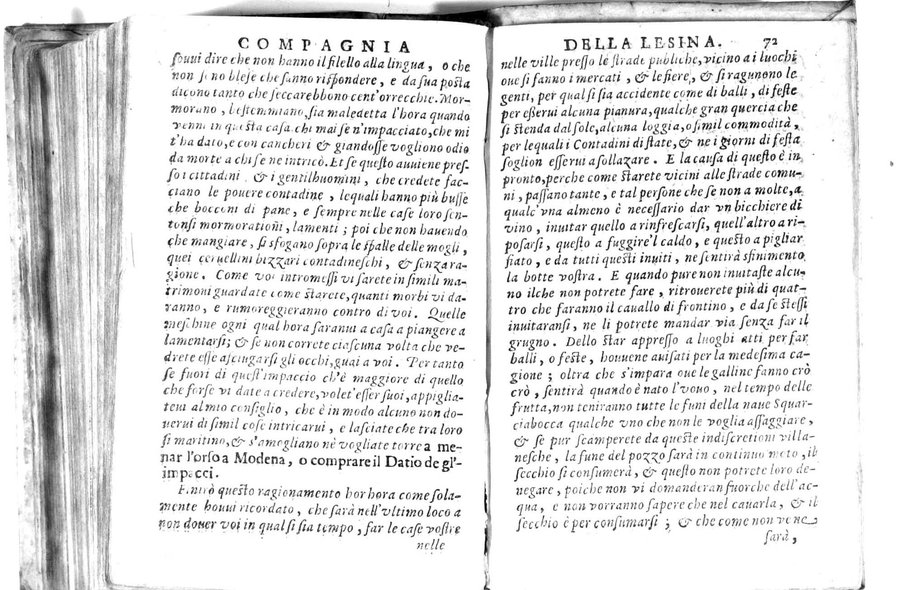 COMPAGNIA
ſouui dire che non hanno il filello alla lingua, o che
non ſono bleje che ſanno riſpondere, e da ſua poſta
dicono tanto che ſeccarebbono cent'orrecchie. Mor-
morano, beſtemmiano, ſia maledetta l'hora quando
venni in queſta caſa, chi mai ſe n'impacciato, che mi
t'ha dato, e con cancheri & giandoſſe vogliono odio
da morte a chi ſe ne intricò. Et ſe queſto auuiene preſ-
ſo i cittadini & i gentilhuomini, che credete fac-
ciano le pouere contadine, lequali hanno più buſſe
che bocconi di pane, e ſempre nelle caſe loro ſen-
tonſi mormorationi, lamenti; poi che non hauendo
che mangiare, ſi sfogano ſopra le ſpalle delle mogli,
quei ceruellini bizzari contadineſchi, & ſenza ra-
gione. Come voi intromeſſi vi ſarete in ſimili ma-
trimoni guardate come ſtarete, quanti morbi vi da-
ranno, e rumoreggieranno contro di voi. Quelle
meſchine ogni qual hora ſaranui a caſa a piangere a
lamentarſi; & ſe non correte ciaſcuna volta che ve-
drete eſſe aſciugarſi gli occhi, guai a voi. Per tanto
ſe fuori di queſt'impaccio ch'è maggiore di quello
che forſe vi date a credere, volet'eſſer ſuoi, appiglia-
teui al mio conſiglio, che è in modo alcuno non do-
uerui di ſimil coſe intricarui, e laſciate che tra loro
ſi maritino, & s'amogliano nè vogliate torre a me-
nar l'orſo a Modena, o comprare il Datio de gl'-
impacci.
Entrò queſto ragionamento hor hora come ſola-
mente houui ricordato, che ſarà nell'vltimo loco a
non douer voi in qual ſi ſia tempo, far le caſe voſtre
nelle
DELLA LESINA. 72
nelle ville preſſo le ſtrade publiche, vicino a i luochi
oue ſi fanno i mercati, & le fiere, & ſi ragunono le
genti, per qual ſi ſia accidente come di balli, di feſte
per eſſerui alcuna pianura, qualche gran quercia che
ſi ſtenda dal ſole, alcuna loggia, o ſimil commodità,
per lequali i Contadini di ſtate, & ne i giorni di feſta
ſoglion eſſerui a ſollazare. E la cauſa di queſto è in
pronto, perche come ſtarete vicini alle ſtrade comu-
ni, paſſano tante, e tal perſone che ſe non a molte, a
qualc'vna almeno è neceſſario dar vn bicchiere di
vino, inuitar quello a rinfreſcarſi, quell'altro a ri-
poſarſi, queſto a fuggire'l caldo, e queſto a pigliar
fiato, e da tutti queſti inuiti, ne ſentirà sfinimento
la botte voſtra. E quando pure non inuitaſte alcu-
no ilche non potrete fare, ritrouerete più di quat-
tro che faranno il cauallo di frontino, e da ſe ſteſſi
inuitaranſi, ne li potrete mandar via ſenza far il
grugno. Dello ſtar appreſſo a luoghi atti per far
balli, o feſte, houuene auiſati per la medeſima ca-
gione; oltra che s'impara oue le galline fanno crò
crò, ſentirà quando è nato l'vouo, nel tempo delle
frutta, non teniranno tutte le funi della naue Squar-
ciabocca qualche vno che non le voglia aſſaggiare,
& ſe pur ſcamperete da queſte indiſcretioni villa-
neſche, la fune del pozzo ſarà in continuo moto, il
ſecchio ſi conſumerà, & queſto non potrete loro de-
negare, poiche non vi domanderan fuorche dell'ac-
qua, e non vorranno ſapere che nel cauarla, & il
ſecchio è per conſumarſi; & che come non vene
ſarà,